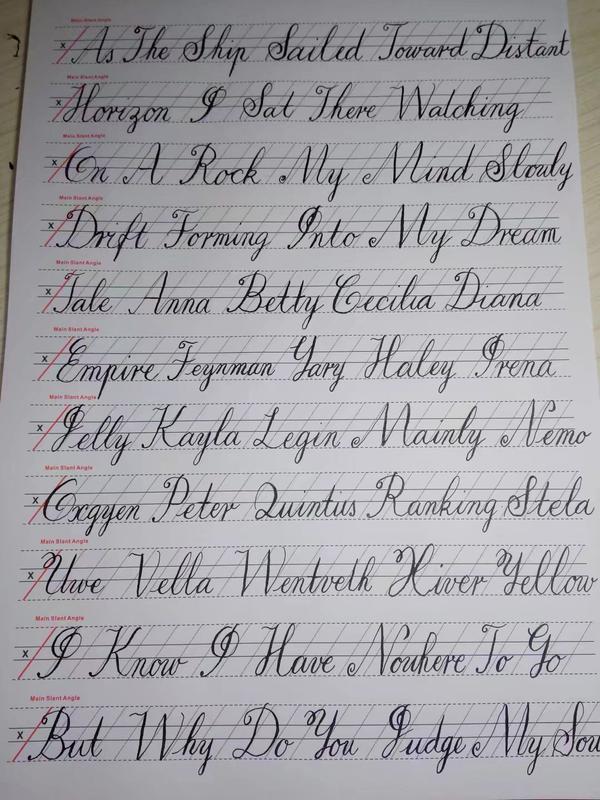 Main Slant Angle
x As The Ship Sailed Toward Distant
Main Slant Angle
x Horizon I Sat There Watching
Main Slant Angle
x On A Rock My Mind Slowly
Main Slant Angle
x Drift Forming Into My Dream
Main Slant Angle
x Tale Anna Betty Cecilia Diana
Main Slant Angle
x Empire Feynman Gary Haley Irena
Main Slant Angle
x Jelly Kayla Legin Mainly Nemo
Main Slant Angle
x Oxgyen Peter Quintius Ranking Stela
Main Slant Angle
x Uwe Vella Wentveth Xiver Yellow
Main Slant Angle
x I Know I Have Nowhere To Go
Main Slant Angle
x But Why Do You Judge My Sou